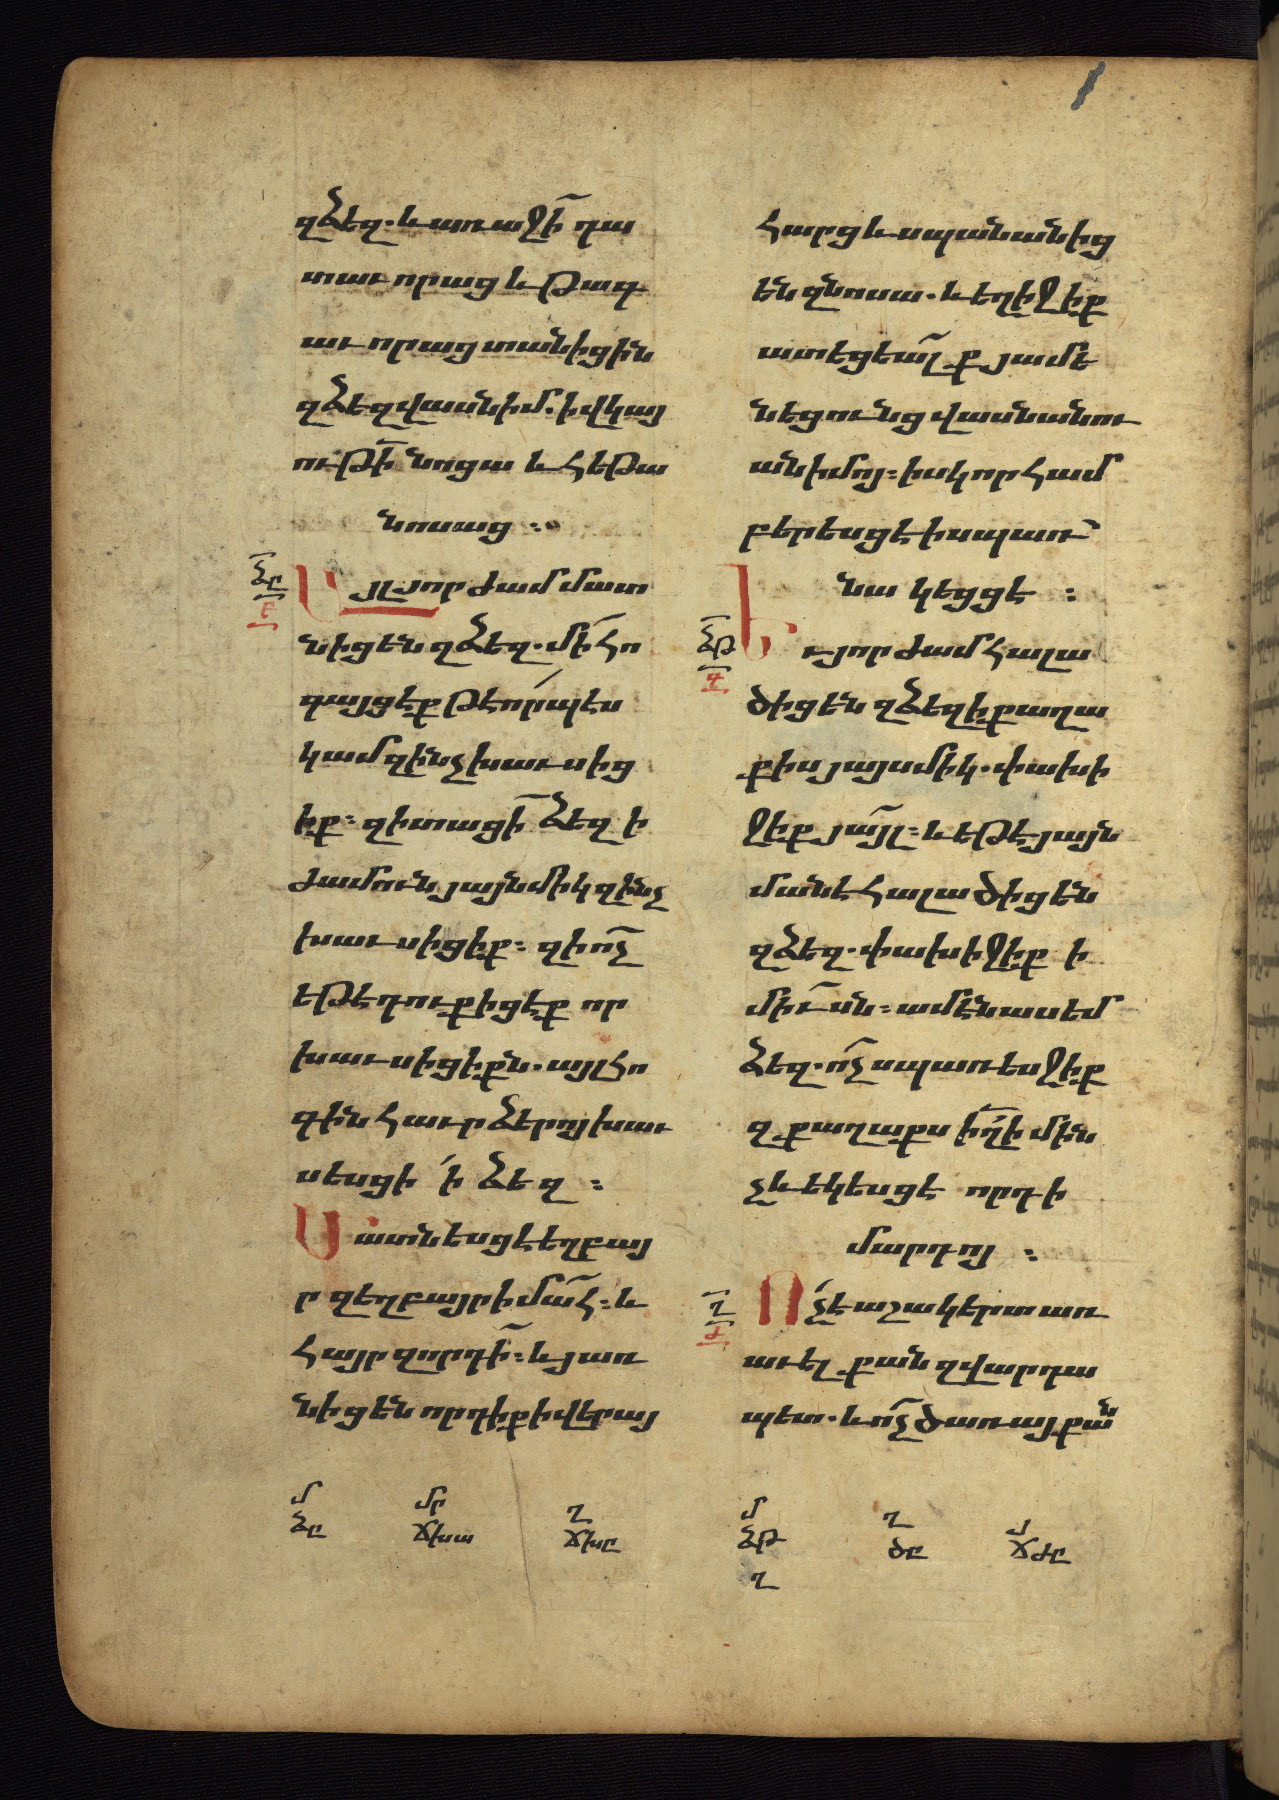 զձեզ. և առաջի դա
տաւորաց և թագ
աւորաց տանիցին
զձեզ վասն իմ. ի վկայ
ութի նոցա և հեթա
նոսաց :
ձը
բ
Այլ յորժամ մատ
նիցեն զձեզ. մի հո
գայցէք թէ որպէս
կամ զինչ խաւսից
իք : զի տացի ձեզ ի
ժամուն յայնմիկ զինչ
խաւսիցիք : զի ոչ
եթէ դուք իցէք որ
խաւսիցիքն. այլ հո
գին հաւր ձերոյ խաւ
սեսցի ի ձեզ :
Մատնեսցէ եղբայ
ր զեղբայր ի մահ : և
հայր զորդի : և յառ
նիցեն որդիք ի վերայ
մ
ձը
մր
ճխա
ղ
ճխը
հարց և սպանանից
են զնոսա. և եղիջիք
ատեցեալք յամե
նեցունց վասն անու
ան իմոյ : իսկ որ համ
բերեսցէ ի սպառ
նա կեցցէ :
ձթ
գ
Եւ յորժամ հալա
ծիցեն զձեզ ի քաղա
քիս յայսմիկ. փախի
ջիք յայլ : և եթէ յայն
մանէ հալածիցեն
զձեզ. փախիջիք ի
միւսն : ամէն ասեմ
ձեզ. ոչ սպառեսջիք
զքաղաքս իղի մին
չև եկեսցէ որդի
մարդոյ :
ղ
ժ
Ոչ է աշակերտ առ
աւել քան զվարդա
պետ. և ոչ ծառայ քան
մ
ձթ
ղ
ղ
ծը
յ
ճժը